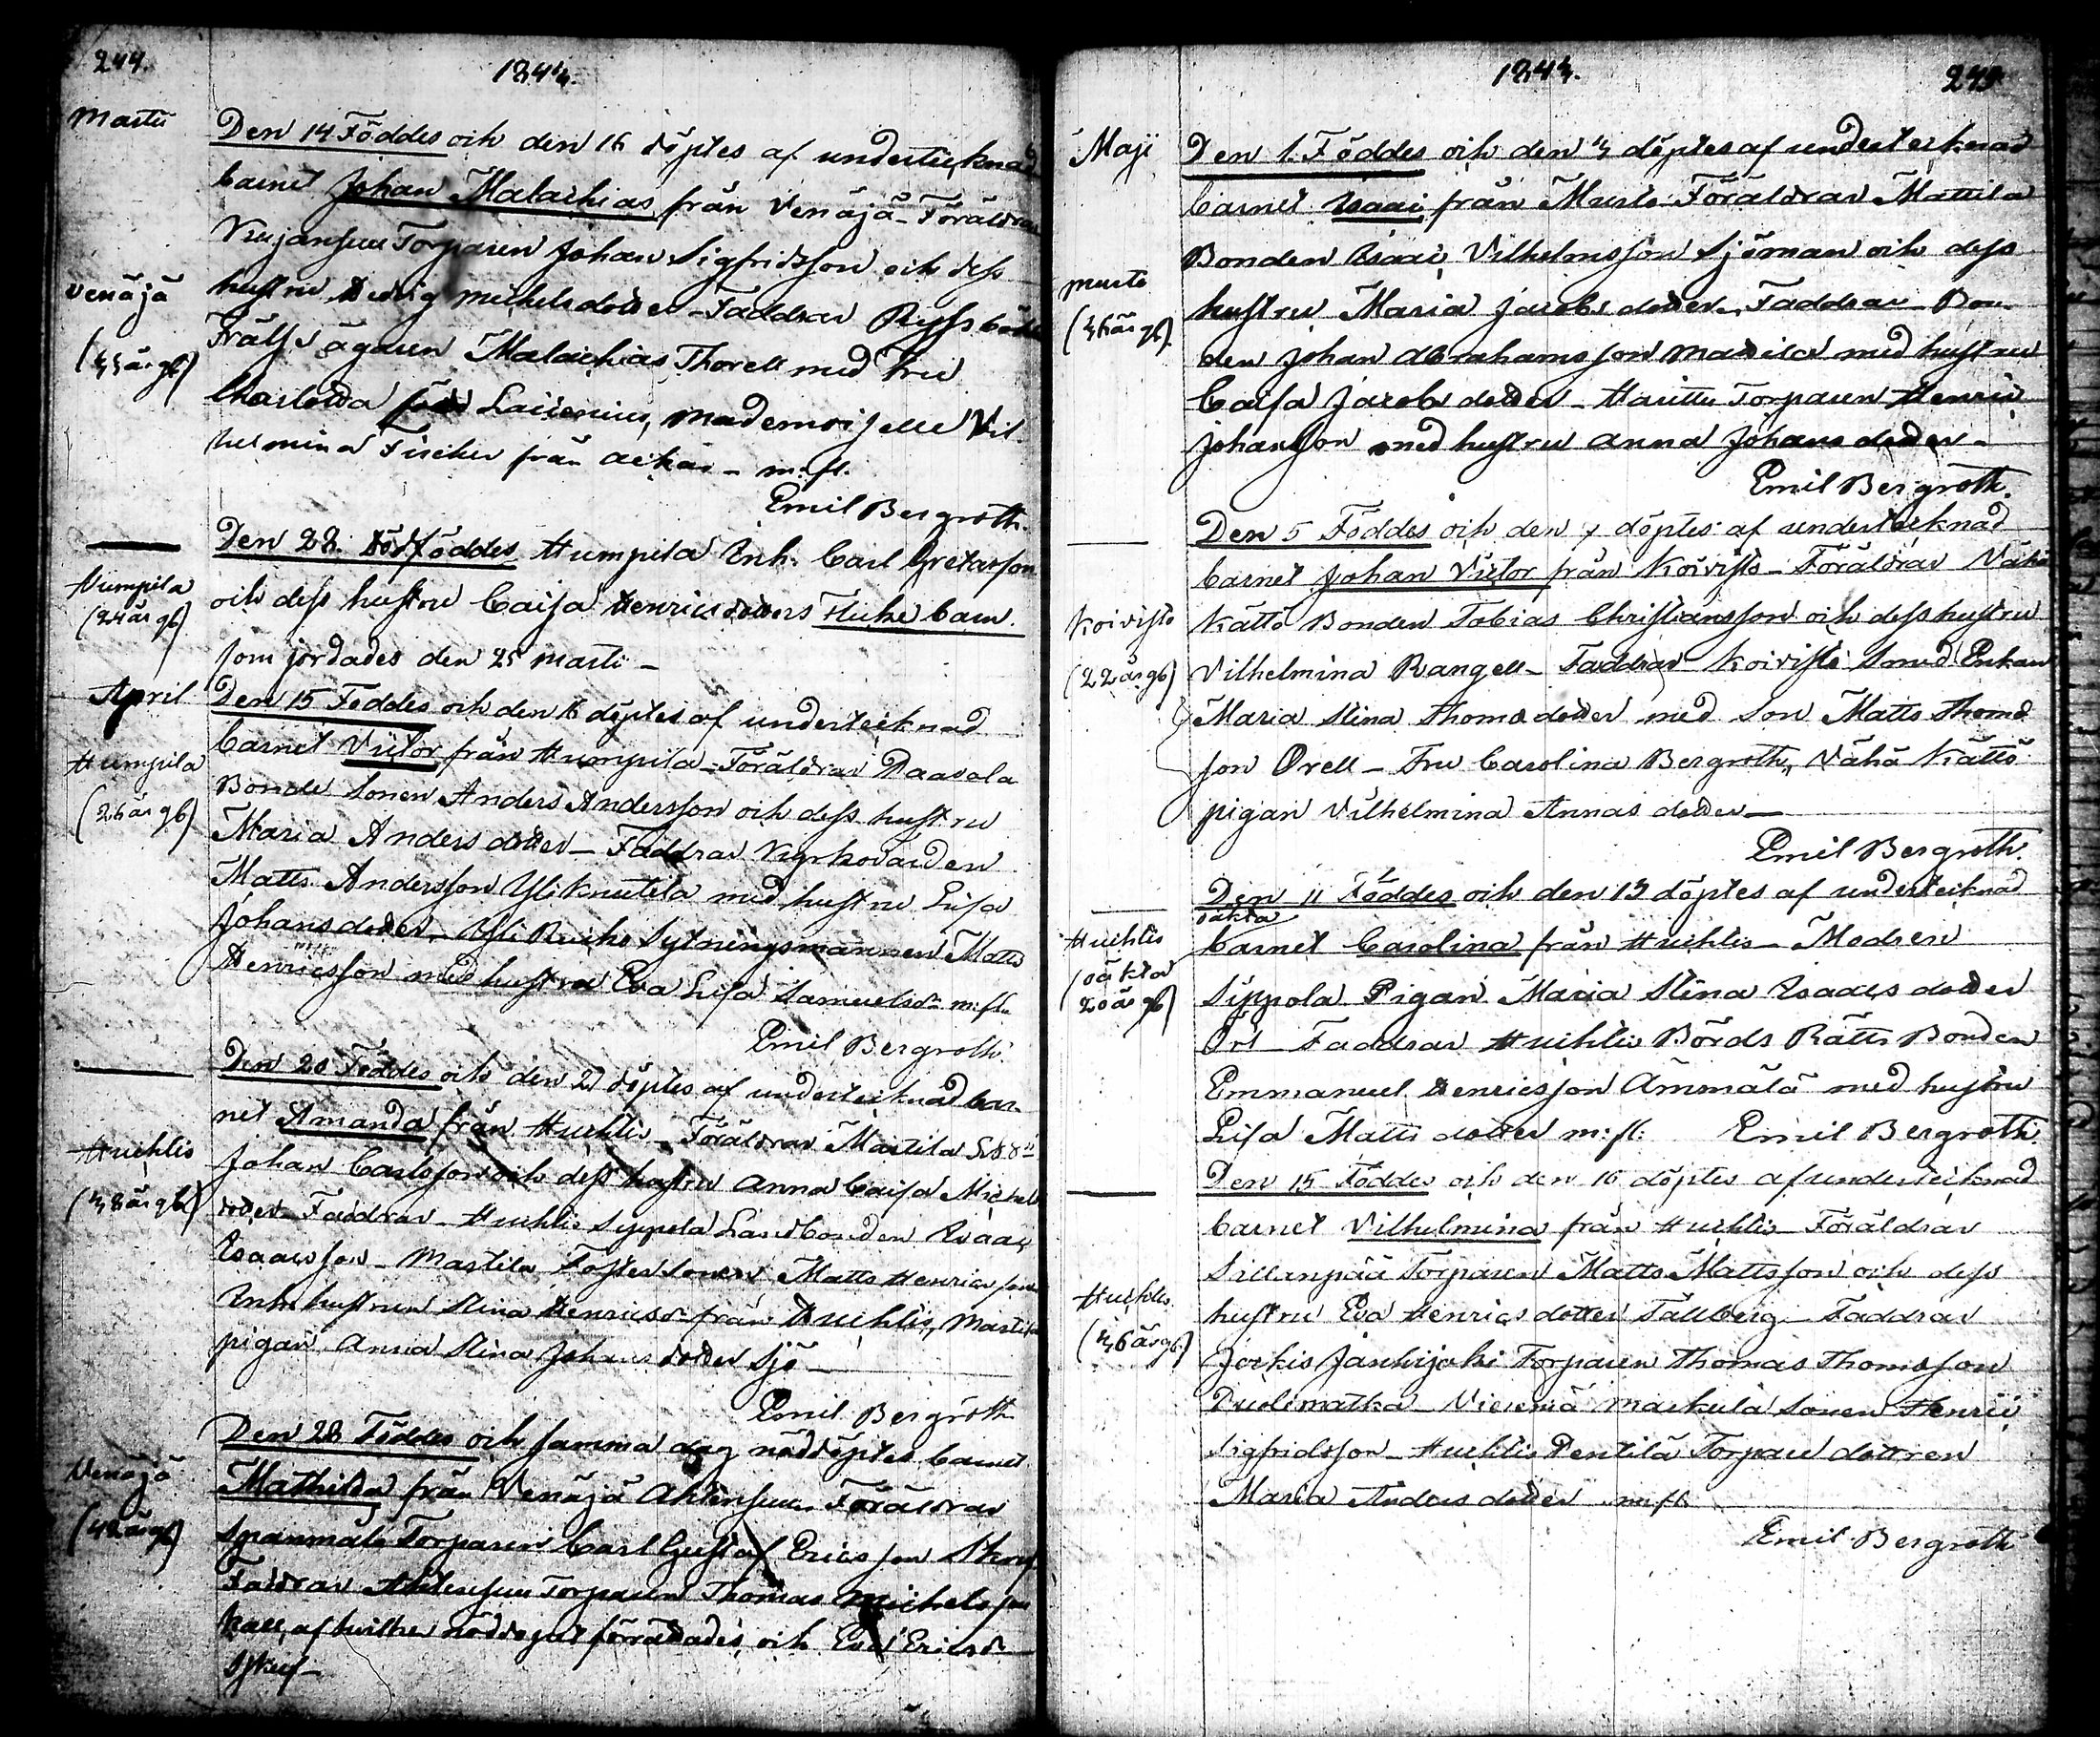 244.
1844.
Martii
Den 14 Föddes och den 16 döptes af undertecknad
barnet Johan Malachias från Venäjä - Föräldrar
Kujansuu Torparen Johan Sigfridsson och dess
Venäjä
hustru Hedvig Michelsdotter - Faddrar Ryss
Frälse ägaren Malachias Thorell med Fru
Charlotta född Laurenius, Mademoiselle Vil-
helmina Fischer från - m:fl.
Emil Bergroth.
Den 22. Dödföddes Humpila Inh. Carl
Humpila
(24 år gl)
och dess hustru Caisa Henricsdotters Flicke barn.
som jordades den 25 Martii -
April
Den 15 Föddes och den 16 döptes af undertecknad
Humpila
barnet Victor från Humpila - Föräldrar Paavola
(26 år gl)
Bonde Sonen Anders Andersson och dess hustru
Maria Andersdotter - Faddrar Kyrkovärden
Matts Andersson Yliknuutila med hustru Lisa
Johansdotter, Yli Sytningsmannen Matts
Henricsson med hustru Eva Lisa Samuelsdr m:fl.
Emil Bergroth.
Den 20 Föddes och den 21 döptes af undertecknad bar-
net Amanda från Huchtis - Föräldrar Martila
Huchtis
Johan Carlsson och dess hustru Anna Caisa Michels
dotter - Faddrar - Huchtis Syppola Landbonden Isaac
Isaacsson - Martila Foster Sonen Matts Henricsson
Inh. hustrun Stina Henricsdr från Huchtis, Martila
pigan Anna Stina Johansdotter Sjö -
Emil Bergroth
Den 28 Föddes och samma dag nöddöptes barnet
Venäjä
Mathilda från Venäjä Ahtensuu Föräldrar
(42 år gl)
Spanmåls Torparen Carl Gustaf Ericsson
Faddrar Ahtensuu Torparen Thomas Michelsson
af hvilken nöddopet förrättades, och Eva Ericsdr
1844.
245
Maji
Den 1. Föddes och den 4 döptes af undertecknad
barnet Isaac från Murto - Föräldrar Mattila
Bonden Isaac Vilhelmsson Sjöman och dess
Murto
hustru Maria Jacobsdotter - Faddrar - Bon-
(36 år gl)
den Johan Abrahamsson Mattila med hustru
Caisa Jacobsdotter - Torparen Henric
Johansson med hustru Anna Johansdotter -
Emil Bergroth.
Den 5 Föddes och den 7 döptes af undertecknad
barnet Johan Victor från Koivisto - Föräldrar Vähä
Koivisto
Kättö Bonden Tobias Christiansson och dess hustru
(22 år gl)
Vilhelmina Rangell - Faddrar - Koivisto Smed Enkan
Maria Stina Thomasdotter med Son Matts Thoms
son Orell - Fru Carolina Bergroth, Vähä Kättö
pigan Vilhelmina Annasdotter -
Emil Bergroth.
Den 11 Föddes och den 13 döptes af undertecknad
oäkta
Huchtis
barnet Carolina från Huchtis - Modren
(oäkta
20 år gl)
Syppola Pigan Maria Stina Isaacsdotter
Faddrar Huchtis Börds Rätts Bonden
Emmanuel Henricsson Ämmälä med hustru
Lisa Mattsdotter m:fl: Emil Bergroth
Den 15 Föddes och den 16 döptes af undertecknad
barnet Vilhelmina från Huchtis - Föräldrar
Sillanpää Torparen Matts Mattsson och dess
Huchtis
hustru Eva Henricsdotter Tallberg - Faddrar
(36 år gl)
Jockis Jänhijoki Torparen Thomas Thomasson
Puolimatka - Vieremä Markula Sonen Henric
Sigfridsson - Huchtis Pentilä Torpare dottren
Maria Andersdotter m:fl.
Emil Bergroth